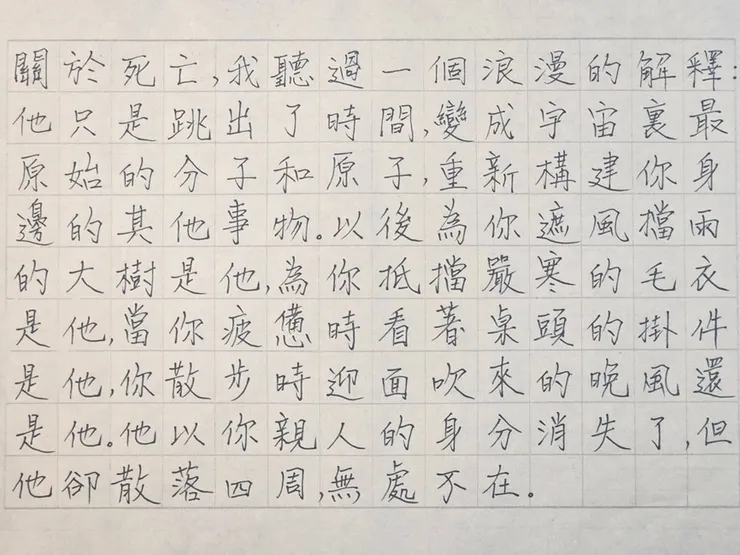 關於死亡,我聽過一個浪漫的解釋:
他只是跳出了時間,變成宇宙裏最
原始的分子和原子,重新構建你身
邊的其他事物。以後為你遮風擋雨
的大樹是他,為你抵擋嚴寒的毛衣
是他,當你疲憊時看著桌頭的掛件
是他,你散步時迎面吹來的晚風還
是他。他以你親人的身分消失了,但
他卻散落四周,無處不在。